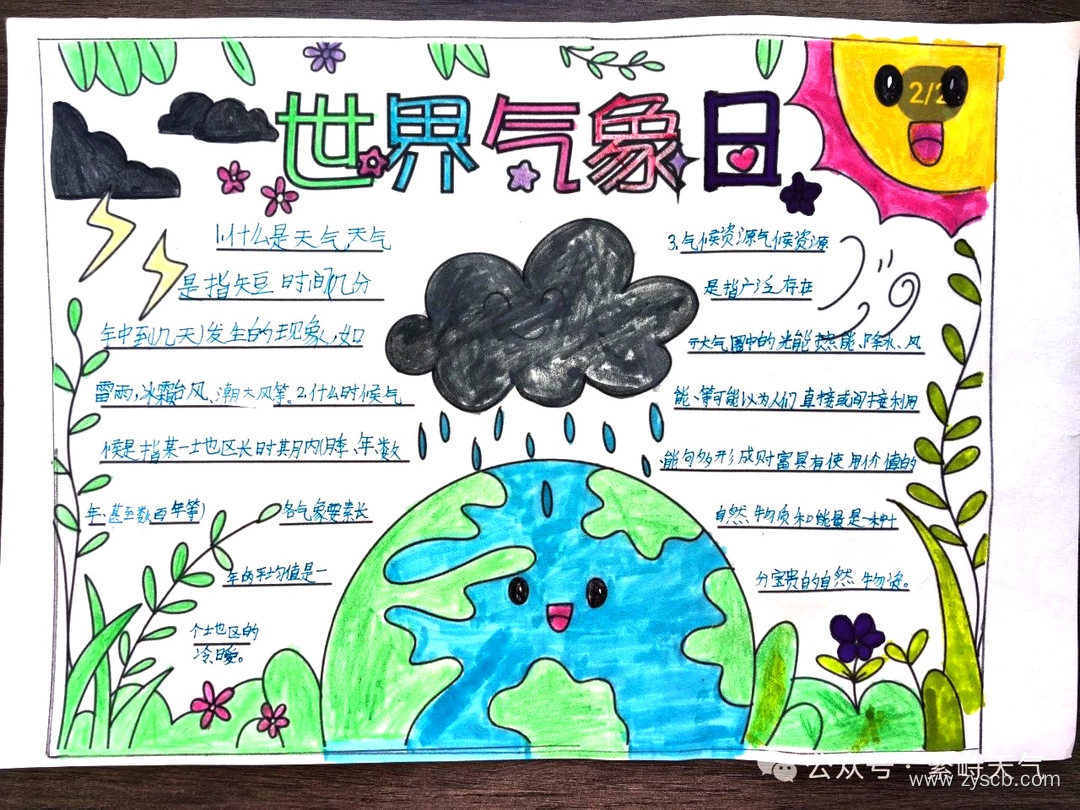 世界气象日
2/2
1.什么是天气,天气
是指短时间(几分
年中到几天)发生的现象,如
雷雨,冰霜台风、潮大风等。2.什么时候气
候是指某一地区长时期内(月季、年、数
年、甚至数百年等)
各气象要素长
年的平均值是一
个地区的
冷暖。
3.气候资源气候资源
是指广泛存在
于大气圈中的光能热能、降水、风
能、等可能以为人们直接或间接利用
能向多形成财富具有使用价值的
自然物质和能量是一种
分宝贵的自然物资。
公众号·繁峙天气
www.zyscb.com